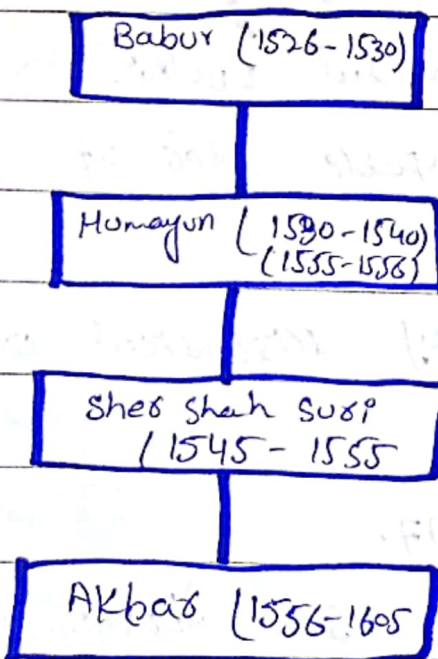 Babur (1526-1530)
Humayun (1530-1540)
(1555-1556)
Sher Shah Suri
(1545-1555
Akbar (1556-1605